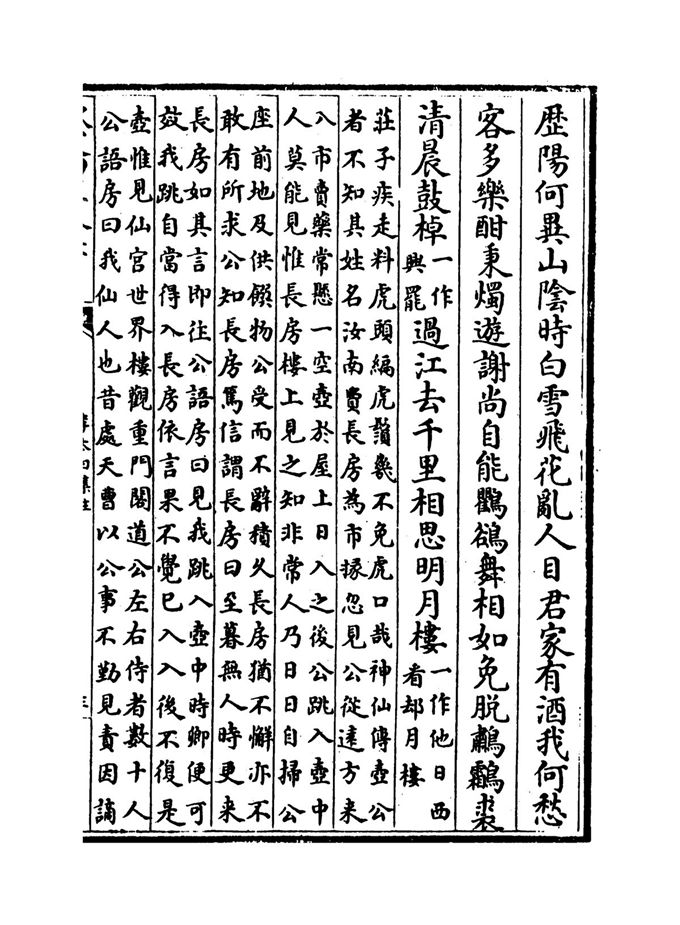 歴陽何異山陰時白雪飛花亂人目君家有酒我何愁
客多樂酣秉燭遊謝尚自能鸜鵒舞相如免脱鷫鸘裘
清晨鼓棹一作興罷過江去千里相思明月樓一作他日西看却月樓
莊子疾走料虎頭編虎鬚幾不免虎口哉神仙傳壺公
者不知其姓名汝南費長房為市掾忽見公從逺方来
入市賣藥常懸一空壺於屋上日入之後公跳入壺中
人莫能見惟長房樓上見之知非常人乃日日自掃公
座前地及供饌物公受而不辭積久長房猶不懈亦不
敢有所求公知長房篤信謂長房曰至暮無人時更来
長房如其言即往公語房曰見我跳入壺中時卿便可
效我跳自當得入長房依言果不覺已入入後不復是
壺惟見仙宫世界樓觀重門閣道公左右侍者數十人
公語房曰我仙人也昔處天曹以公事不勤見責因謫